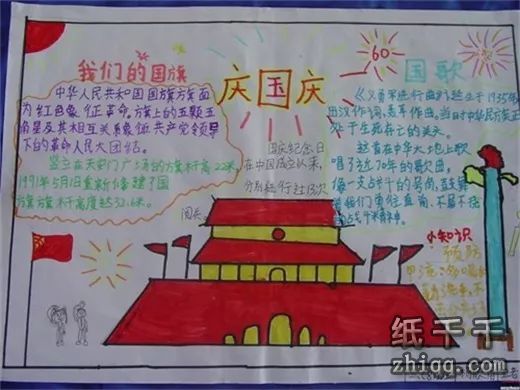 我们的国旗
中华人民共和国国旗旗面
为红色像征革命,旗上的五颗五
角星及其相互关系像征共产党领导
下的革命人民大团结。
竖立在天安门广场的旗杆高22米,
1991年5月1日重新修建了国
旗旗杆高度达32.6米。
庆国庆
国庆纪念日
在中国成立以来,
分别进行过13次
阅兵。
60
国歌
《义勇军进行曲》诞生于1935年
田汉作词,聂耳作曲,当时中华民族正
处于生死存亡的关头。
这首在中华大地上歌
唱了近70年的歌曲。
像一支战斗的号角,鼓舞
着我们勇往直前,不屈不
的战斗精神。
小知识
预防
甲流:
勤洗手,不
纸千千
zhiqq.com